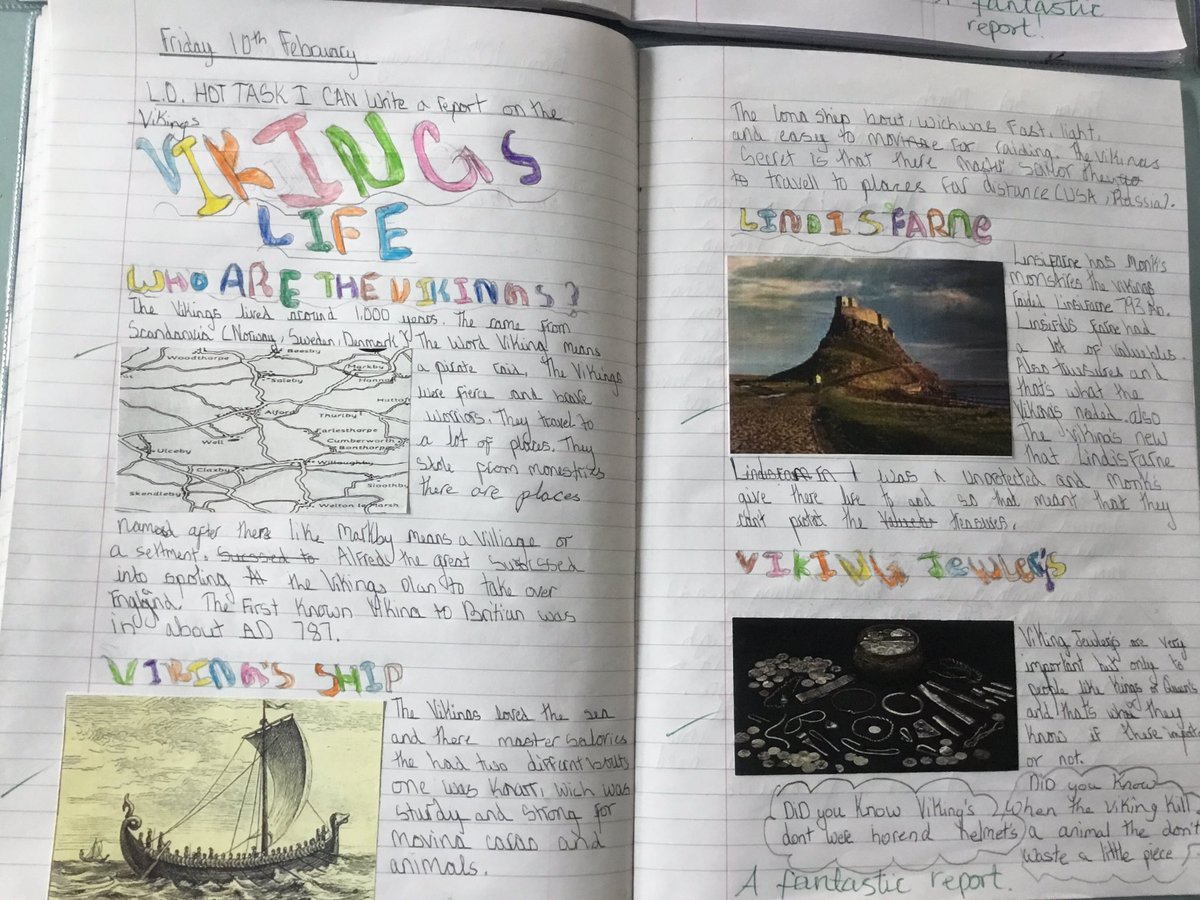 fantastic
report!
Friday 10th February
L.O. HOT TASK I CAN write a report on the
Vikings
VIKINGS
LIFE
WHO ARE THE VIKINGS?
The Vikings lived around 1,000 years. The came from
Scandanvia (Norway, Sweden, Denmark)
The word Viking means
a pirate raid, The Vikings
were fierce and brave
worriors. They travel to
a lot of places. They
stole from monestries
there are places
Woodthorpe
Beesby
Markby
Saleby
Hanna
Hutto
Alford
Thurlby
Farlesthorpe
Well
Cumberworth
Bonthorpe
Ulceby
Claxby
Willoughby
Sloothby
Skendleby
Welton le marsh
named after there like Markby means a village or
a setment. Sucssed to Alfred the great
into spoling the Vikings plan to take over
England The First Known Viking to Britian was
in about AD 787.
VIKING'S SHIP
The Vikings loved the sea
and there master salories
the had two differnt bouts
one was Knarr, wich was
sturdy and strong for
moving cargo and
animals.
The long ship bout, wich was fast, light,
and easy to for raiding. The Vikings
secret is that there master sailor
to travel to places far distance (USA, Russia).
LINDISFARNE
Linsifarne has Monks
monstires the Vikings
raided Linsifarne 793 AD.
Linsifdis farne had
a lot of valuebles.
Also and
that's what the
Vikings neded. also
The Viking's new
that Lindisfarne
was unpotected and monks
give there life to god so that meant that they
can't protect the treasures.
VIKING JEWLERY'S
Viking Jewlerys are very
important but only to
people like Kings or Queen's
and that's they
know if these
or not.
DID you know Viking's
dont were horend helmets
DID you Know
When the viking kill
a animal the don't
waste a little piece
A fantastic report.